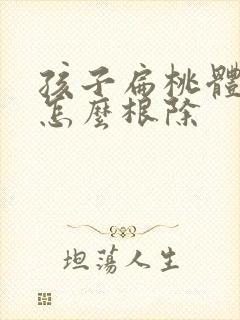 孩子扁桃體
怎麼根除
坦蕩人生